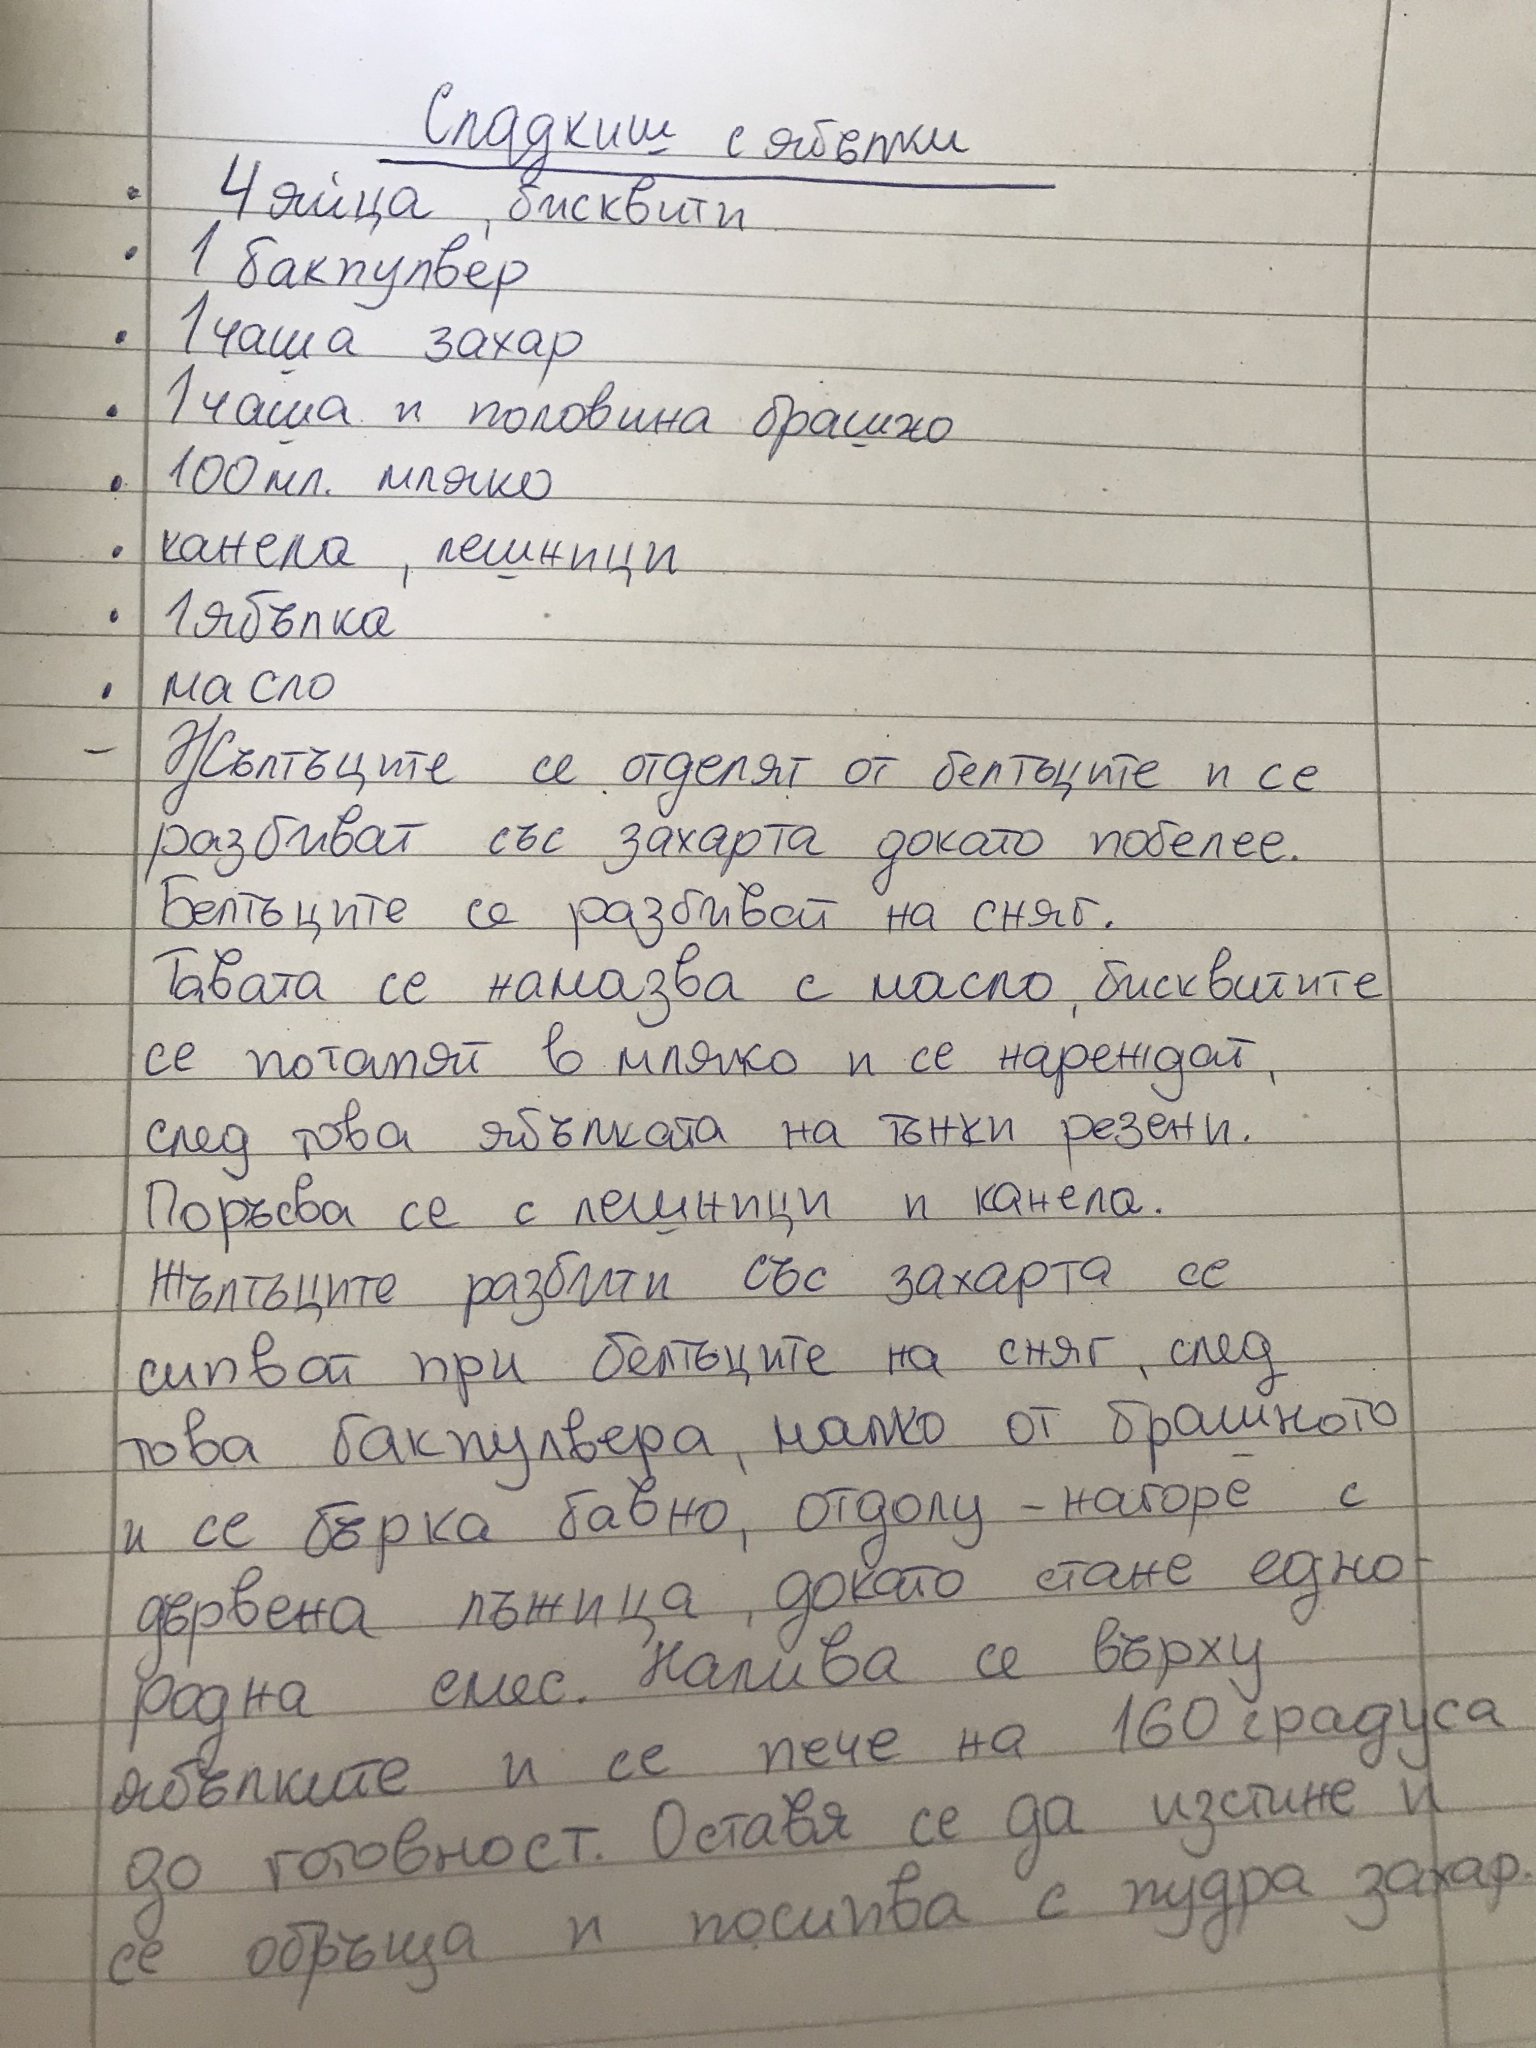 Сладкиш с ябълки
• 4 яйца, бисквити
• 1 бакпулвер
• 1 чаша захар
• 1 чаша и половина брашно
• 100 мл. мляко
• канела, лешници
• 1 ябълка
• масло
- Жълтъците се отделят от белтъците и се
разбиват със захарта докато побелее.
Белтъците се разбиват на сняг.
Тавата се намазва с масло, бисквитите
се потапят в мляко и се нареждат,
след това ябълката на тънки резени.
Поръсва се с лешници и канела.
Жълтъците разбити със захарта се
сипват при белтъците на сняг, след
това бакпулвера, малко от брашното
и се бърка бавно, отдолу - нагоре с
дървена лъжица, докато стане едно-
родна смес. Налива се върху
ябълките и се пече на 160 градуса
до готовност. Оставя се да изстине и
се обръща и посипва с пудра захар.